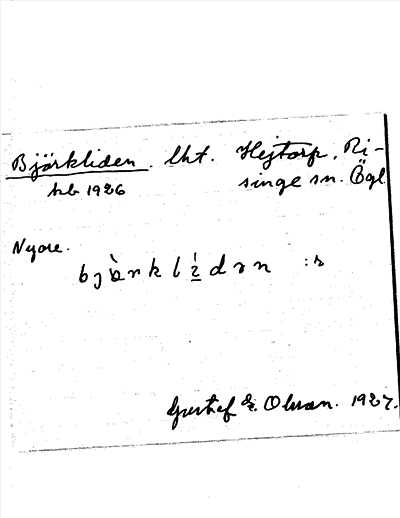 Björkliden. lht. Hejtorp, Ri-
hb 1926 singe sn. Ögl
Nyare.
bjὰrklídən :s
Gustaf E. Olsson. 1927.